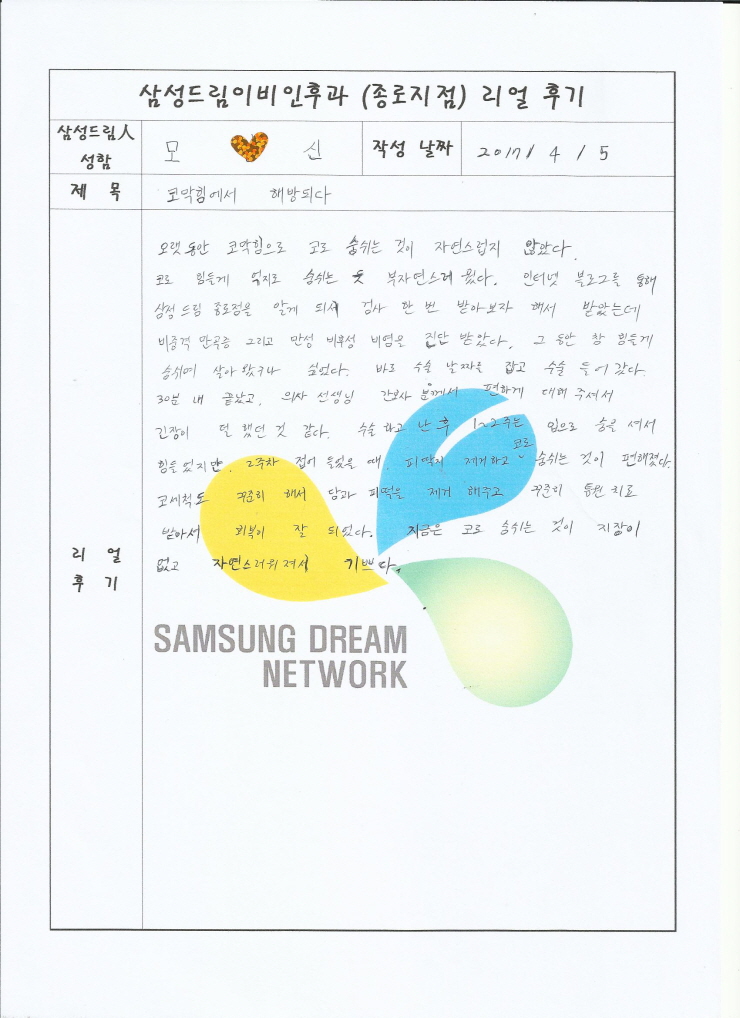 삼성드림이비인후과 (종로지점) 리얼 후기
삼성드림人 성함
모 신
작성 날짜
2017 / 4 / 5
제 목
코막힘에서 해방되다
리 얼 후 기
오랫동안 코막힘으로 코로 숨쉬는 것이 자연스럽지 않았다.
코로 힘들게 억지로 숨쉬는 듯 부자연스러웠다. 인터넷 블로그를 통해
삼성드림 종로점을 알게 되서 검사 한 번 받아보자 해서 받았는데
비중격 만곡증 그리고 만성 비후성 비염을 진단 받았다. 그 동안 참 힘들게
숨쉬며 살아왔구나 싶었다. 바로 수술 날짜를 잡고 수술 들어갔다.
30분 내 끝났고, 의사 선생님 간호사 분께서 편하게 대해 주셔서
긴장이 덜 했던 것 같다. 수술 하고 난 후 1~2주는 입으로 숨을 셔서
힘들었지만, 2주차 접어 들었을 때, 피딱지 제거하고 코로 숨쉬는 것이 편해졌다.
코세척도 꾸준히 해서 피떡을 제거 해주고 꾸준히 통원치료
받아서 회복이 잘 되었다. 지금은 코로 숨쉬는 것이 지장이
없고 자연스러워져서 기쁘다.
SAMSUNG DREAM
NETWORK